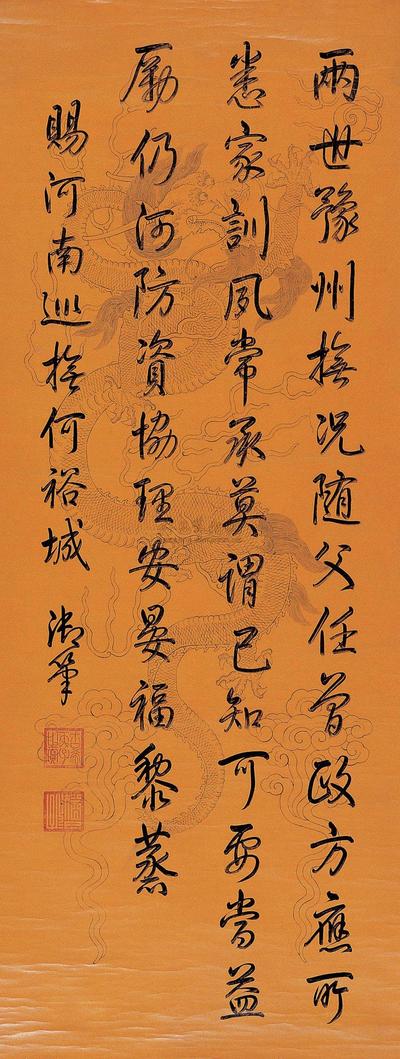 兩世豫州撫況随父任曽政方應所
悉家訓夙常承莫謂已知可要當益
勵仍河防資協理安晏福黎蒸
賜河南巡撫何裕城 御筆